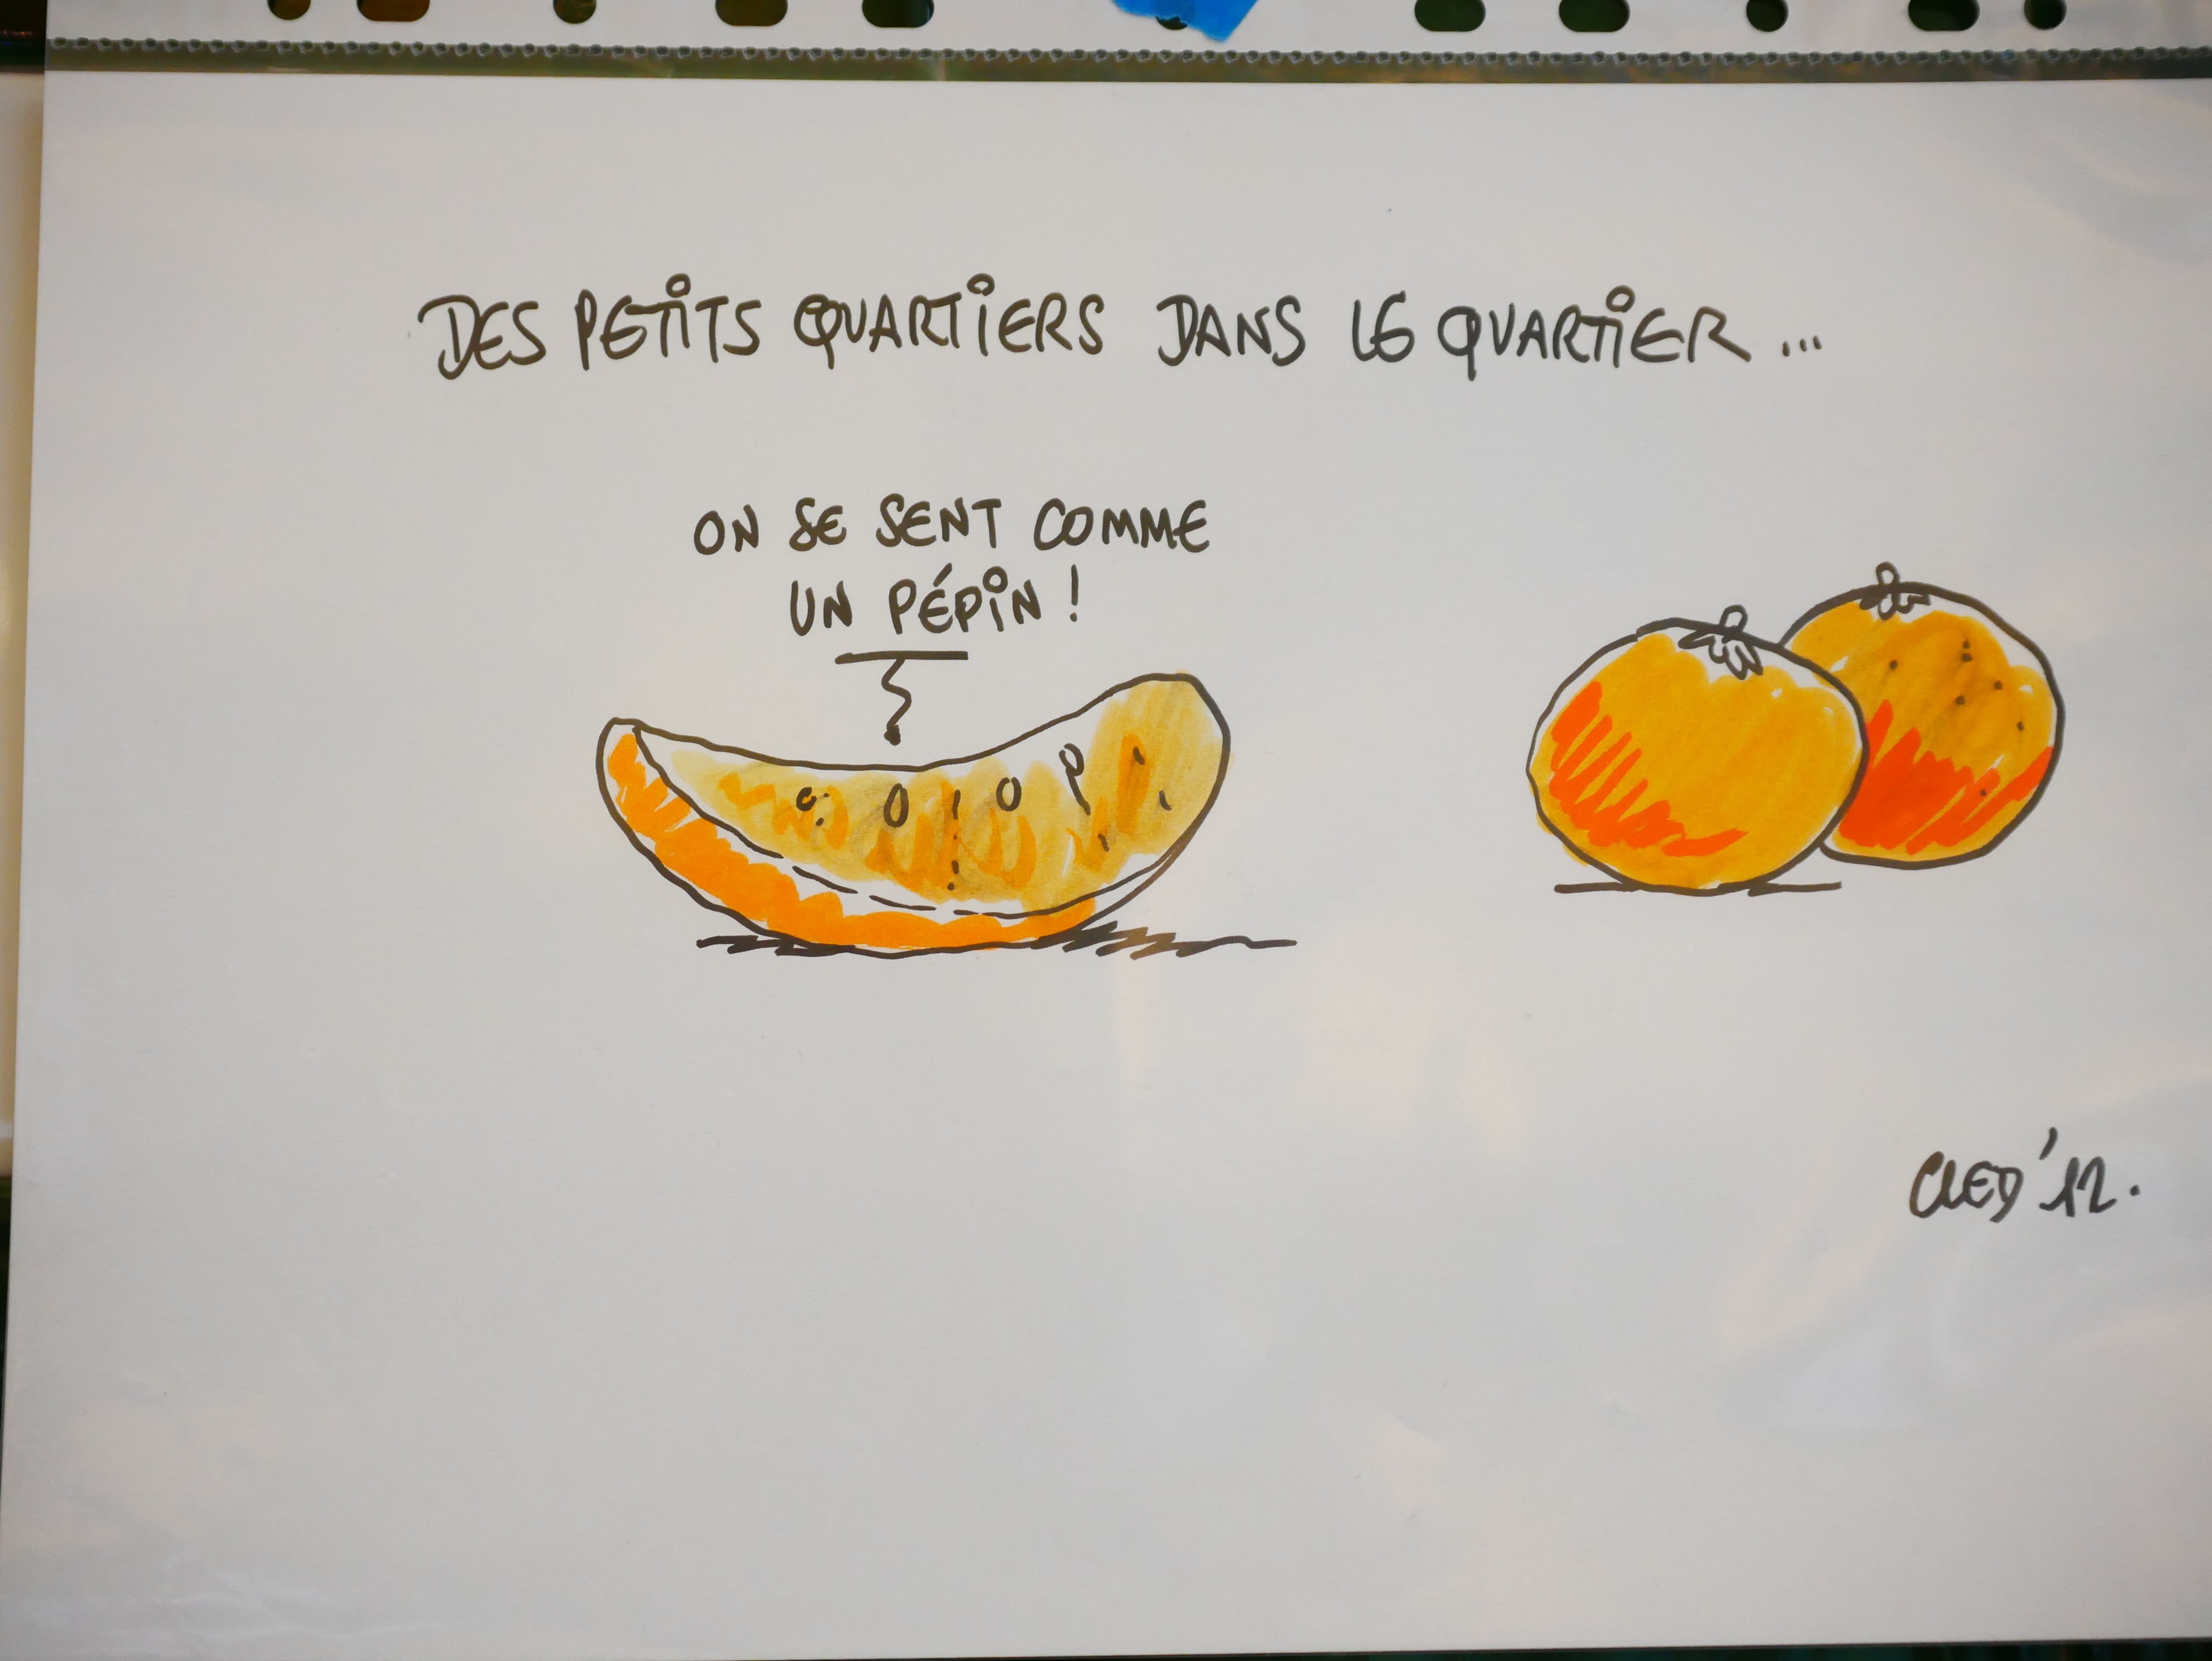 DES PETITS QUARTIERS DANS LE QUARTIER...
ON SE SENT COMME
UN PÉPIN !
CLED'12.